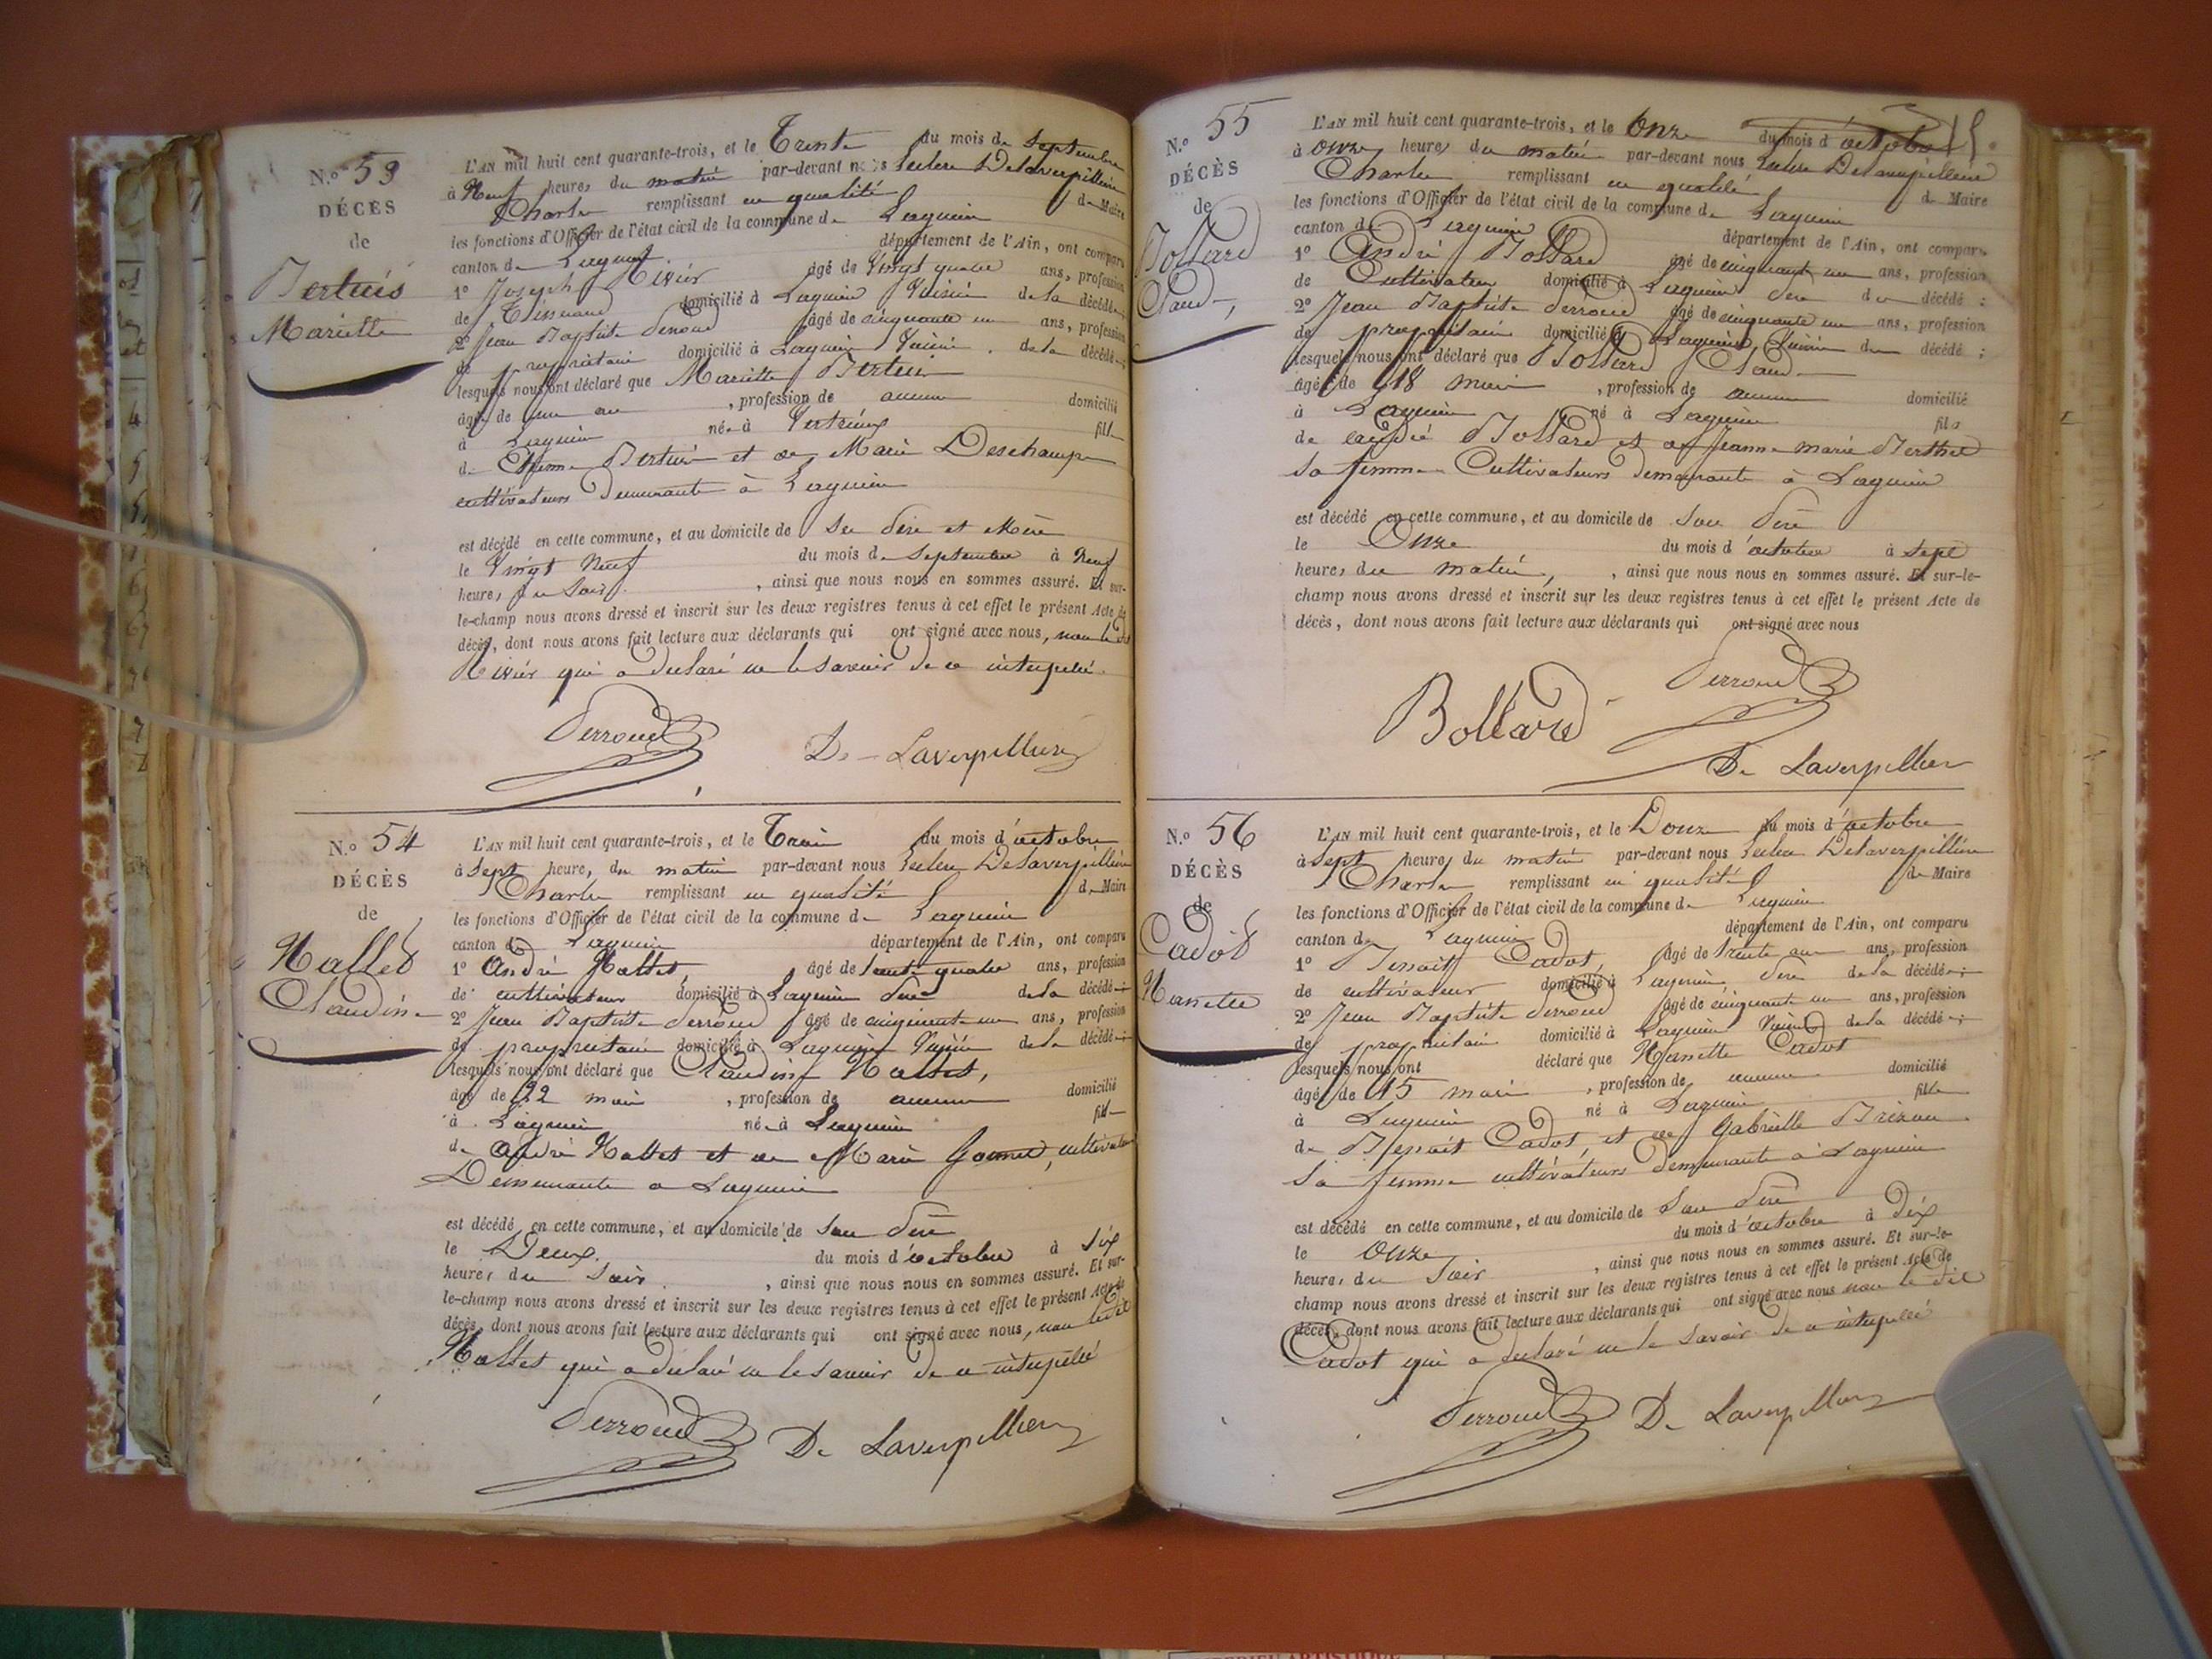 N.o 53
DÉCÈS
de
Bertuis
Mariette
L'AN mil huit cent quarante-trois, et le Trente du mois de Septembre
à Neuf heures du matin par-devant nous Leclerc Delaverpillière
Charles remplissant en qualité de Maire
les fonctions d'Officier de l'état civil de la commune de Lagnieu
canton de Lagnieu département de l'Ain, ont comparu
1o Joseph âgé de Vingt quatre ans, profession
de Tisserand domicilié à Lagnieu Voisin de la décédée
2o Jean Baptiste Perroud âgé de cinquante un ans, profession
de propriétaire domicilié à Lagnieu Voisin de la décédée
lesquels nous ont déclaré que Mariette Bertuis
âgée de un an , profession de aucune domicilié
à Lagnieu née à Vertrieux fille
de Bertuis et de Marie Deschamps
cultivateurs demeurants à Lagnieu
est décédé en cette commune, et au domicile de Ses Père et Mère
le Vingt Neuf du mois de Septembre à Neuf
heures du Soir , ainsi que nous nous en sommes assuré. Et sur-
le-champ nous avons dressé et inscrit sur les deux registres tenus à cet effet le présent Acte de
décès, dont nous avons fait lecture aux déclarants qui ont signé avec nous, non le dit
qui a declaré ne le savoir de ce interpellé.
Perroud
De Laverpilliere
N.o 54
DÉCÈS
de
Nallet
Claudine
L'AN mil huit cent quarante-trois, et le Trois du mois d'octobre
à Sept heures du matin par-devant nous Leclerc Delaverpillière
Charles remplissant en qualité de Maire
les fonctions d'Officier de l'état civil de la commune de Lagnieu
canton de Lagnieu département de l'Ain, ont comparu
1o André Nallet, âgé de trente quatre ans, profession
de cultivateur domicilié à Lagnieu Père de la décédée ;
2o Jean Baptiste Perroud âgé de cinquante un ans, profession
de propriétaire domicilié à Lagnieu Voisin de la décédée ;
lesquels nous ont déclaré que Claudine Nallet,
âgé de 22 mois , profession de aucune domicilié
à Lagnieu née à Lagnieu fille
de André Nallet et de Marie cultivateurs
Demeurants a Lagnieu
est décédé en cette commune, et au domicile de Son Père
le Deux du mois d'octobre à Six
heures du Soir , ainsi que nous nous en sommes assuré. Et sur-
le-champ nous avons dressé et inscrit sur les deux registres tenus à cet effet le présent Acte de
décès, dont nous avons fait lecture aux déclarants qui ont signé avec nous, non le dit
Nallet qui a déclaré ne le savoir de ce interpellé
Perroud De Laverpilliere
N.o 55
DÉCÈS
de
Bollard
Claude
L'AN mil huit cent quarante-trois, et le Onze du mois d'octobre
à Onze heures du matin par-devant nous Leclerc Delaverpillière
Charles remplissant en qualité de Maire
les fonctions d'Officier de l'état civil de la commune de Lagnieu
canton de Lagnieu département de l'Ain, ont comparu
1o André Bollard âgé de cinquante un ans, profession
de Cultivateur domicilié à Lagnieu Père du décédé ;
2o Jean Baptiste Perroud âgé de cinquante un ans, profession
de propriétaire domicilié à Lagnieu Voisin du décédé ;
lesquels nous ont déclaré que Bollard Claude
âgé de 18 mois , profession de aucune domicilié
à Lagnieu né à Lagnieu fils
de André Bollard et de Jeanne marie Berthet
Sa femme Cultivateurs demeurants à Lagnieu
est décédé en cette commune, et au domicile de Son Père
le Onze du mois d'octobre à Sept
heures du matin, , ainsi que nous nous en sommes assuré. Et sur-le-
champ nous avons dressé et inscrit sur les deux registres tenus à cet effet le présent Acte de
décès, dont nous avons fait lecture aux déclarants qui ont signé avec nous
Perroud
Bollard
De Laverpilliere
N.o 56
DÉCÈS
de
Cadot
Nanette
L'AN mil huit cent quarante-trois, et le Douze du mois d'octobre
à Sept heures du matin par-devant nous Leclerc Delaverpillière
Charles remplissant en qualité de Maire
les fonctions d'Officier de l'état civil de la commune de Lagnieu
canton de Lagnieu département de l'Ain, ont comparu
1o Benoit Cadot, âgé de trente ans, profession
de cultivateur domicilié à Lagnieu Père de la décédée ;
2o Jean Baptiste Perroud âgé de cinquante un ans, profession
de propriétaire domicilié à Lagnieu Voisin de la décédée ;
lesquels nous ont déclaré que Nanette Cadot
âgé de 15 mois , profession de aucune domicilié
à Lagnieu né à Lagnieu fille
de Benoit Cadot, et de Gabrielle
Sa femme cultivateurs demeurants à Lagnieu
est décédé en cette commune, et au domicile de Son Père
le Onze du mois d'octobre à Dix
heures du Soir , ainsi que nous nous en sommes assuré. Et sur-le-
champ nous avons dressé et inscrit sur les deux registres tenus à cet effet le présent Acte de
décès, dont nous avons fait lecture aux déclarants qui ont signé avec nous non le dit
Cadot qui a declaré ne le savoir de ce interpellé
Perroud De Laverpilliere